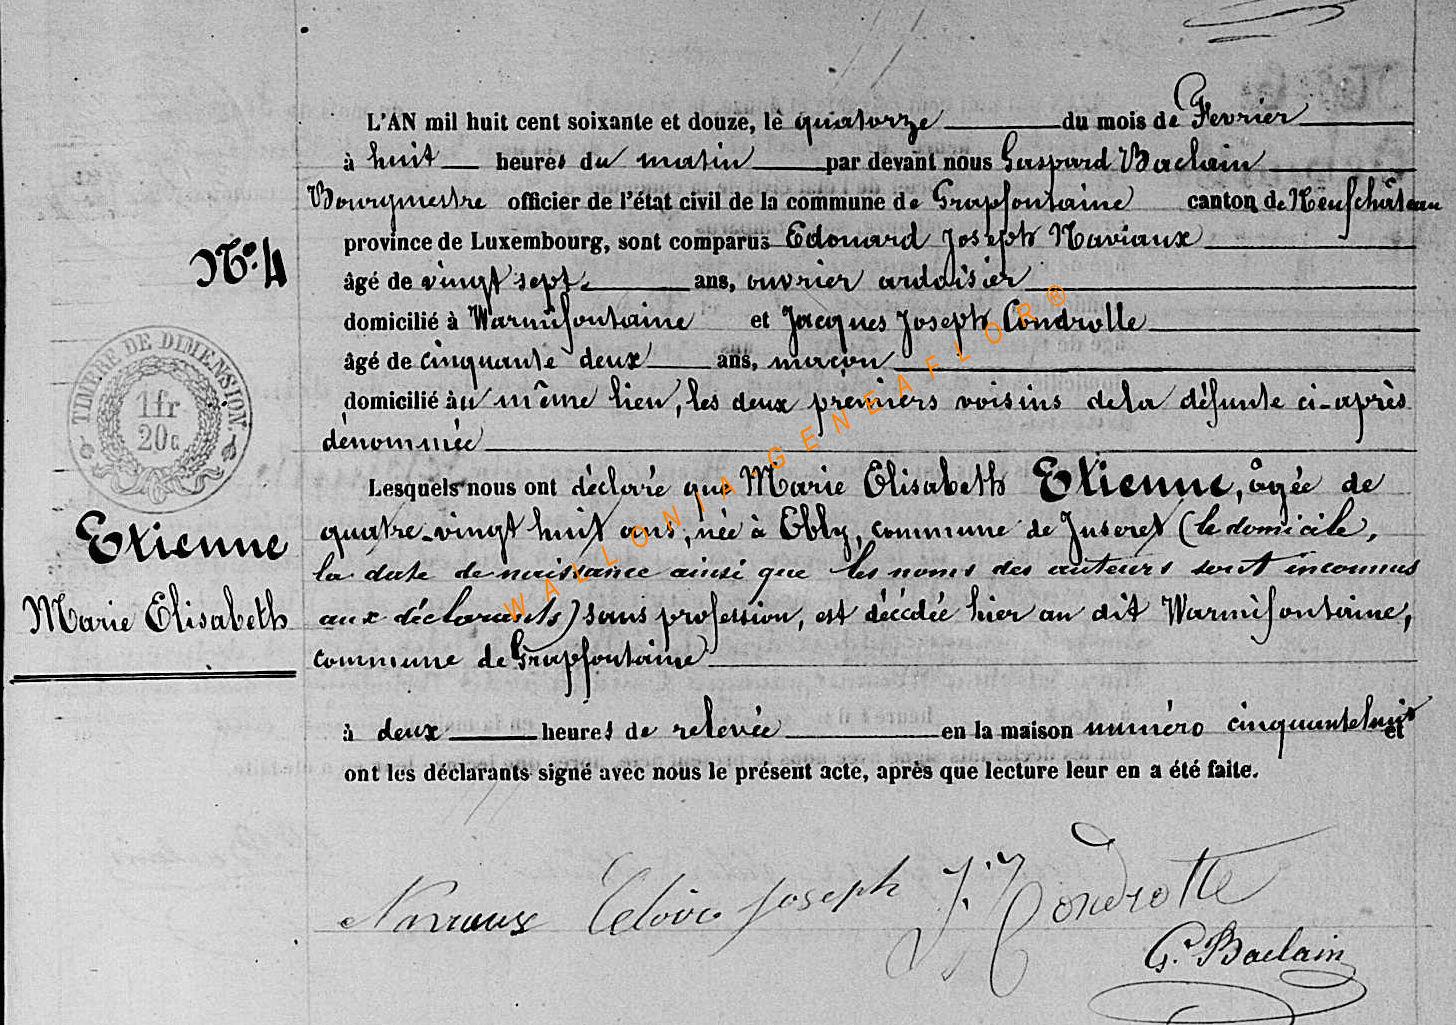 L'AN mil huit cent soixante et douze, le quatorze du mois de Fevrier
à huit heures du matin par devant nous Gaspard Baclain
Bourgmestre officier de l'état civil de la commune de Grapfontaine canton de Neufchâteau
province de Luxembourg, sont comparus Edouard Joseph Naviaux
N° 4
âgé de vingt sept ans, ouvrier ardoisier
domicilié à Warmifontaine et Jacques Joseph Condrotte
âgé de cinquante deux ans, maçon
TIMBRE DE DIMENSION
1fr
20c
domicilié àu même lieu, les deux premiers voisins de la défunte ci-après
dénommée
Lesquels nous ont déclaré que Marie Elisabeth Etienne, âgée de
quatre-vingt huit ans, née à Ebly, commune de Juseret (le domicile,
Etienne
la date de naissance ainsi que les noms des auteurs sont inconnus
Marie Elisabeth
aux déclarants) sans profession, est décédée hier au dit Warmifontaine,
commune de Grapfontaine
à deux heures de relevée en la maison numéro cinquante huit et
ont les déclarants signé avec nous le présent acte, après que lecture leur en a été faite.
Joseph J. J. Condrotte
G. Baclain
WALLONIA-GENEAFLOR®